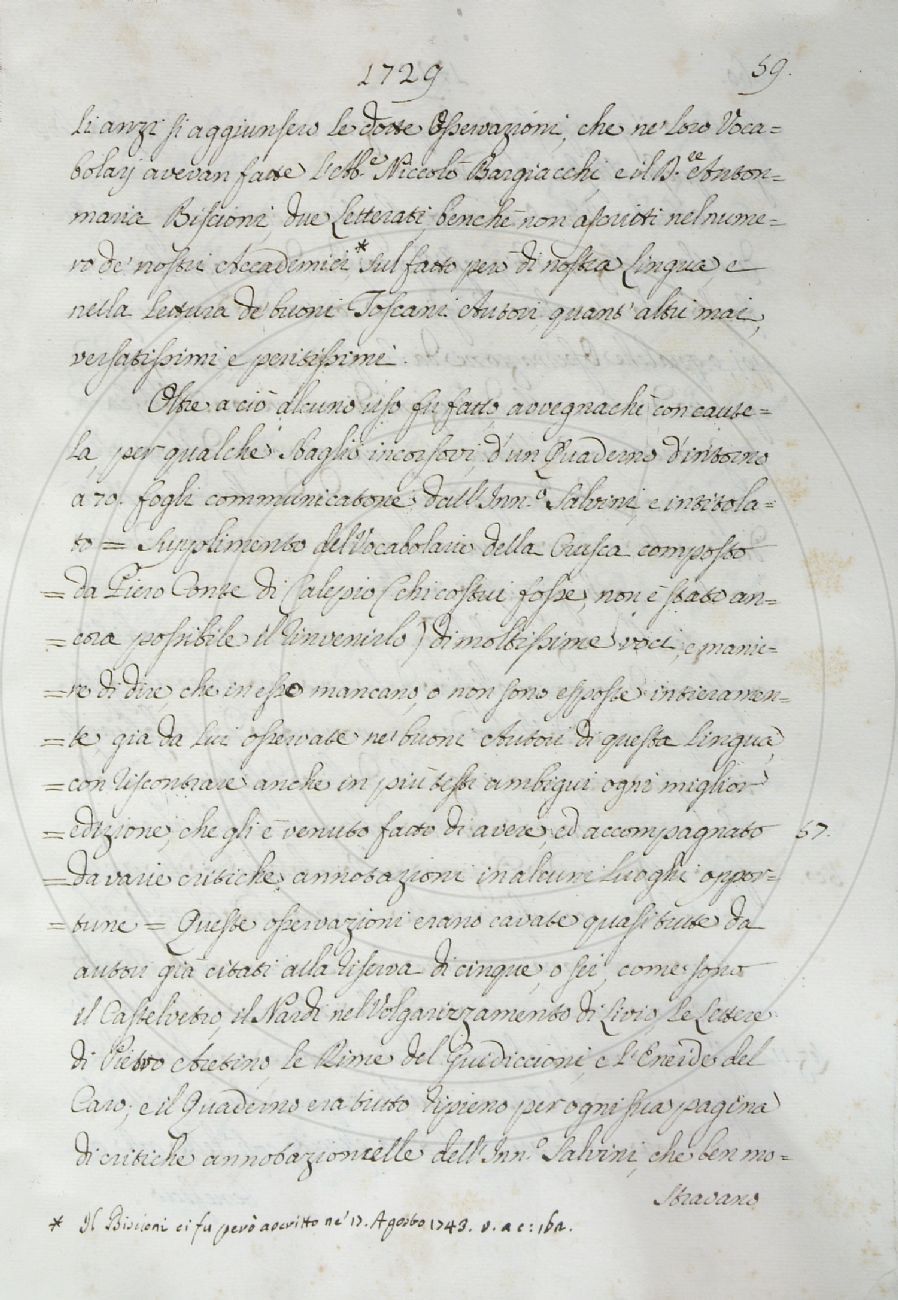 1729
59.
li anzi si aggiunsero le dotte Osservazioni, che ne' loro Voca=
bolarj avevan fatte l'Abb.e Niccolò Bargiacchi, e il D.re Anton=
maria Biscioni, due Letterati, benchè non ascritti nel nume=
ro de' nostri Accademici,* sul fatto però di nostra Lingua, e
nella lettura de' buoni Toscani Autori, quant' altri mai,
versatissimi e peritissimi.
Oltre a ciò alcuno uso fu fatto, avvegnachè con caute=
la, per qualche sbaglio incorsovi, d'un Quaderno d'intorno
a 70. fogli communicatone dall' Inn.o Salvini, e intitola=
to = Supplimento del Vocabolario della Crusca composto
= da Piero Conte di Calepio (chi costui fosse, non è stato an=
= cora possibile il rinvenirlo) di moltissime voci, e manie=
= re di dire, che in esso mancano, o non sono esposte intieramen=
= te, già da lui osservate ne' buoni Autori di questa lingua,
= con riscontrare anche in più testi ambigui ogni miglior
= edizione, che gli è venuto fatto di avere, ed accompagnato
57.
= da varie critiche annotazioni in alcuni luoghi oppor=
= tune = Queste osservazioni erano cavate quasi tutte da
autori già citati alla riserva di cinque, o sei, come sono
il Castelvetro, il Nardi nel Volgarizzamento di Livio, le Lettere
di Pietro Aretino, le Rime del Guidiccioni, e l'Eneide del
Caro; e il Quaderno era tutto ripieno per ogni sua pagina
di critiche annotazioncelle dell' Inn.o Salvini, che ben mo=
stravano
* Il Biscioni ci fu però ascritto ne' 17. Agosto 1743. v. a c: